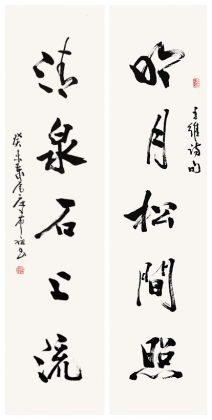 明月松間照
王維詩句
清泉石上流
癸未歲尾